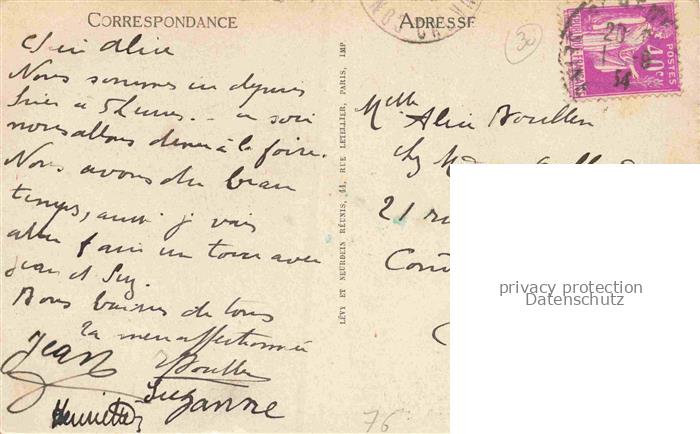 CORRESPONDANCE
Alice
Nous sommes ici depuis
hier à 5 heures. ce soir
nous allons dîner à la foire.
Nous avons du beau
temps, aussi je vais
aller faire un tour avec
Jean et Suz.
Bons baisers de tous
Ta mère affectionnée
Jean
Suzanne
Henriette
LÉVY ET NEURDEIN RÉUNIS, 44, RUE LETELLIER, PARIS, IMP
ADRESSE
30
POSTES
40c
20
1
34
Melle Alice
chez
21 rue
76
privacy protection
Datenschutz